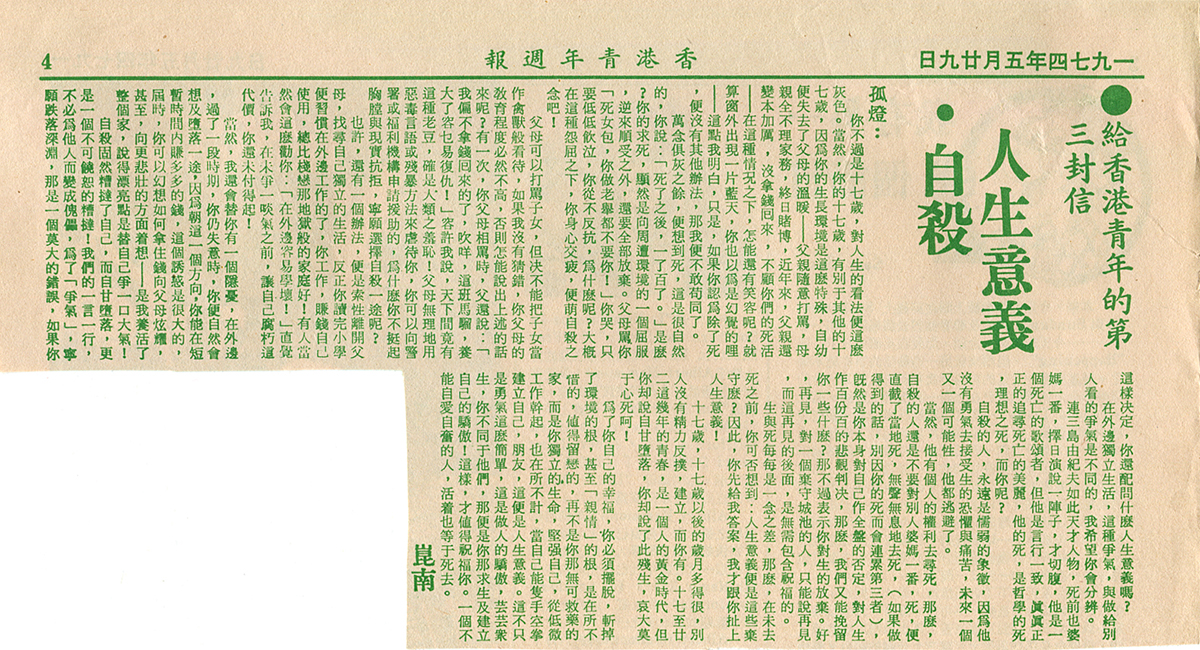 一九七四年五月廿九日
香港青年週報
4
●給香港青年的第
三封信
人生意義
·自殺
孤燈：
你不過是十七歲，對人生的看法便這麼
灰色。當然，你的十七歲，有別于其他的十
七歲，因爲你的生長環境是這麼特殊，自幼
便失去了父母的溫暖——父親隨意打罵，母
親全不理家務，終日賭博，近年來，父親還
變本加厲，沒拿錢回來，不顧你們的死活
。在這種情况之下，怎能還有笑容呢？就
算窗外出現一片藍天，你也以爲是幻覺的哩
——這點我明白，只是，如果你認爲除了死
，便沒有其他辦法，那我便不敢苟同了。
萬念俱灰之餘，便想到死，這是很自然
的，你說：「死了之後，一了百了。」是麼
？你的求死，顯然是向周遭環境的一個屈服
，逆來順受之外，還要全部放棄。父母罵你
「死女包，你做老舉都不要你！」你哭，只
要低低飲泣，你從不反抗，爲什麼呢？大概
在這種怨屈之下，你身心交疲，便萌自殺之
念吧！
父母可以打罵子女，但决不能把子女當
作禽獸般看待，如果我沒有猜錯，你父母的
敎育程度必然不高，否則怎能說出上述的話
來呢？有一次，你父母相罵時，父還說：「
我偏不拿錢回來的了，吹咩，這班馬騮，養
大了容乜易復仇！」容許我說，天下間竟有
這種老豆，確是人類之羞恥！父母無理地用
惡毒言語或殘暴方法來虐待你，你可以向警
署或福利機構申請援助的，爲什麼你不挺起
胸膛與現實抗拒，寧願選擇自殺一途呢？
也許，還有一個辦法，便是索性離開父
母，找尋自己獨立的生活，反正你讀完小學
便習慣在外邊工作的了，你工作，賺錢自己
使用，總比棧戀那地獄般的家庭好！有人當
然會這麼勸你：「在外邊容易學壞！」直覺
告訴我，在未爭一啖氣之前，讓自己腐朽這
代價，你還未付得起！
當然，我還會替你有一個隱憂，在外邊
，過了一段時期，你仍失意時，你便自然會
想及墮落一途，因爲朝這一個方向，你能在短
暫時間內賺多多的錢，這個誘惑是很大的，
屆時，你可以幻想如何拿住錢向父母炫耀，
甚至，向更悲壯的方面着想——是我養活了
整個家，說得漂亮點是替自己爭一口大氣！
自殺固然糟撻了自己，而自甘墮落，更
是一個不可饒恕的糟撻！我們的一言一行，
不必爲他人而變成傀儡，爲了「爭氣」，寧
願跌落深淵，那是一個莫大的錯誤，如果你
這樣决定，你還配問什麼人生意義嗎？
在外邊獨立生活，這種爭氣，與做給別
人看的爭氣是不同的，我希望你會分辨。
連三島由紀夫如此天才人物，死前也婆
媽一番，擇日演說一陣子，才切腹，他是一
個死亡的歌頌者，但他是言行一致，眞眞正
正的追尋死亡的美麗，他的死，是哲學的死
，理想之死，而你呢？
自殺的人，永遠是懦弱的象徵，因爲他
沒有勇氣去接受生的恐懼與痛苦，未來一個
又一個可能性，他都逃避了。
當然，他有個人的權利去尋死，那麼，
自殺的人還是不要對別人婆媽一番，死，便
直截了當地死，無聲無息地去死，（如果做
得到的話，別因你的死而會連累第三者），
旣然是你本身對自己作全盤的否定，對人生
作百份百的悲觀判决，那麼，我們又能挽留
你一些什麼？那不過表示你對生的放棄。好
，再見，對一個棄守城池的人，只能說再見
，而這再見的後面，是無需包含祝福的。
生與死每每是一念之差，那麼，在未去
死之前，你可否想到：人生意義便是這些棄
守麼？因此，你先給我答案，我才跟你扯上
人生意義！
十七歲，十七歲以後的歲月多得很，別
人沒有精力反撲，建立，而你有。十七至廿
二這幾年的靑春，是一個人的黃金時代，但
你却說自甘墮落，你却說了此殘生，哀大莫
于心死呵！
爲了你自己的幸福，你必須擺脫，斬掉
了環境的根，甚至「親情」的根，是在所不
惜的，値得留戀的，再不是你那無可救藥的
家，而是你獨立的生命，堅强自己，從低微
工作幹起，也在所不計，當自己能隻手空拳
建立自己，朋友，這便是人生意義。這不只
是勇氣這麼簡單，這是做人的驕傲，芸芸衆
生，你不同于他們，那便是你那求生及建立
自己的驕傲！這樣，才値得祝福你。一個不
能自愛自奮的人，活着也等于死去。
崑南